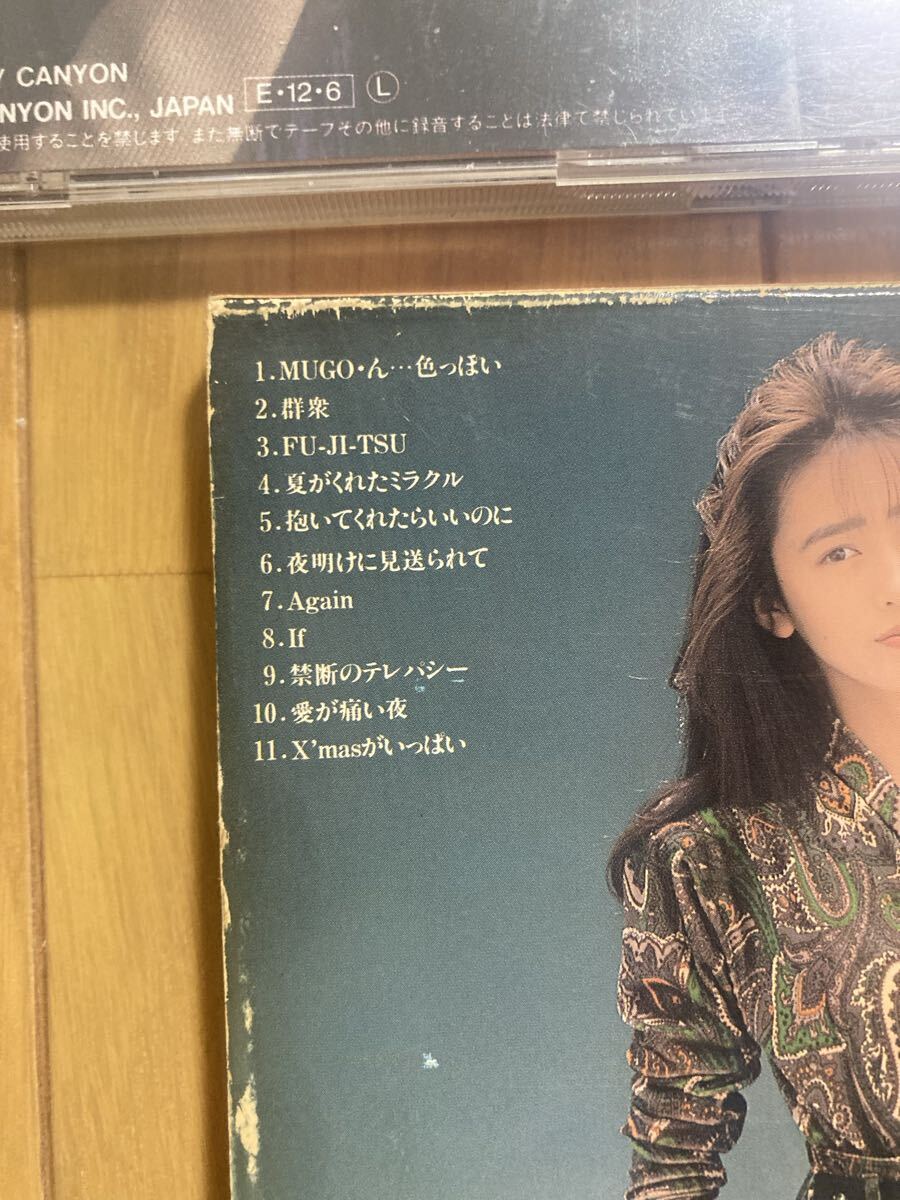 CANYON
NYON INC., JAPAN E・12・6 L
使用することを禁じます。また無断でテープその他に録音することは法律で禁じられています。
1.MUGO・ん…色っぽい
2.群衆
3.FU-JI-TSU
4.夏がくれたミラクル
5.抱いてくれたらいいのに
6.夜明けに見送られて
7.Again
8.If
9.禁断のテレパシー
10.愛が痛い夜
11.X'masがいっぱい